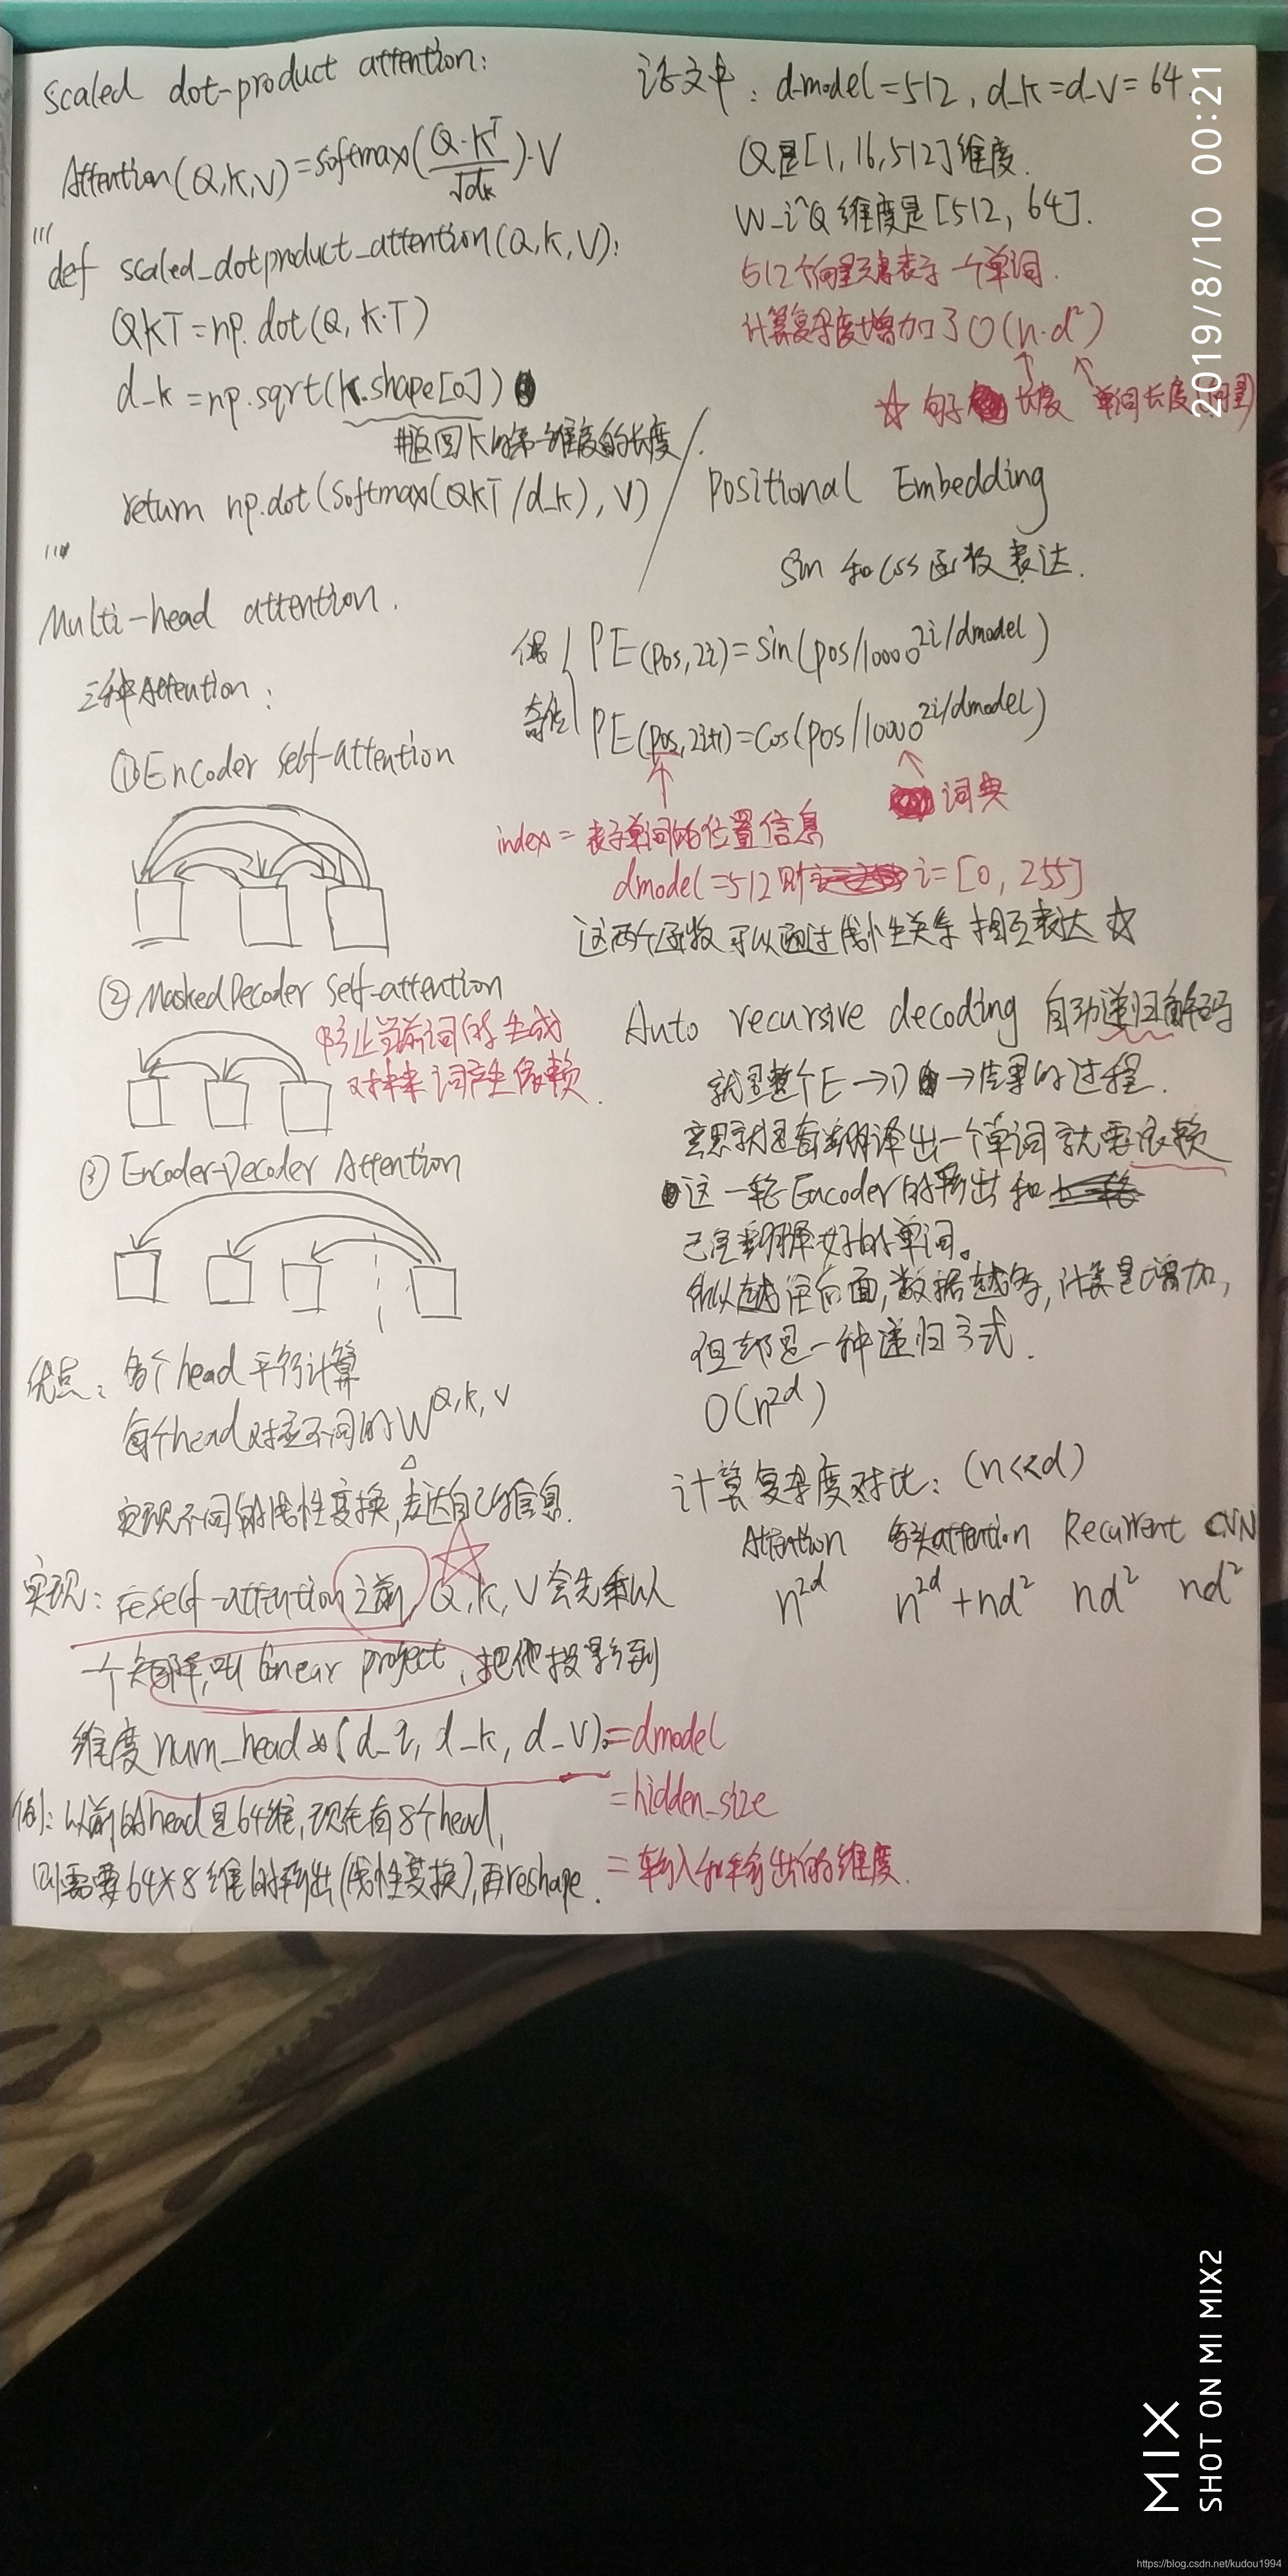 Scaled dot-product attention:
Attention(Q,K,V)=softmax(Q·K^T/√dk)·V
'''
def scaled_dotproduct_attention(Q,K,V):
QKT=np.dot(Q,K·T)
d_k=np.sqrt(K.shape[0])
#返回K的第一维度的长度
return np.dot(softmax(QKT/d_k),V)
'''
Multi-head attention.
三种Attention:
①Encoder self-attention
②Masked Decoder self-attention
防止当前词的生成
对未来词产生依赖.
③Encoder-Decoder Attention
优点: 多个head平行计算
每个head对应不同的W^Q,K,V
实现不同的线性变换,表达自己的信息.
实现: 在self-attention之前, Q,K,V会先乘以
一个矩阵,叫linear project,把他投影到
维度num_head*(d_q, d_k, d_v).=dmodel
=hidden_size
=输入和输出的维度.
例: 以前的head是64维,现在有8个head,
则需要64*8维的输出(线性变换),再reshape.
论文中: d_model=512, d_k=d_v=64.
Q是[1,16,512]维度.
W_i^Q维度是[512, 64].
512个向量元素表示一个单词.
计算复杂度增加了O(n·d²)
☆句子长度 单词长度(向量)
Positional Embedding
sin和cos函数表达.
偶 PE(pos,2i)=sin(pos/10000^2i/dmodel)
奇位 PE(pos,2i+1)=cos(pos/10000^2i/dmodel)
词典
index=表示单词的位置信息
dmodel=512则 i=[0, 255]
这两个函数可以通过线性关系相互表达☆
Auto recursive decoding 自动递归解码
就是整个E→D→结果的过程.
意思就是每翻译出一个单词就要依赖
这一轮Encoder的输出和
已完翻译好的单词。
所以越往后面,数据越多,计算量增加,
但却是一种递归方式.
O(n^2d)
计算复杂度对比: (n<<d)
Attention 多头attention Recurrent CNN
n^2d n^2d+nd² nd² nd²
2019/8/10 00:21
MIX
SHOT ON MI MIX2
https://blog.csdn.net/kudou1994